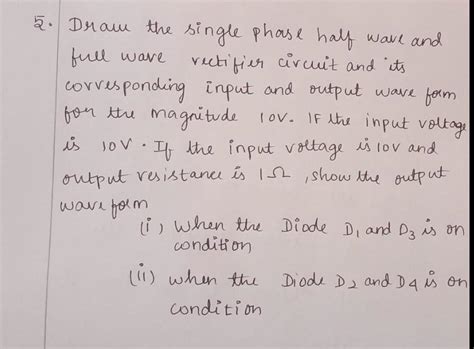 5. Draw the single phase half wave and
full wave rectifier circuit and its
corresponding input and output wave form
for the magnitude 10V. IF the input voltage
is 10V. If the input voltage is 10V and
output resistance is 1Ω, show the output
wave form
(i) When the Diode D1 and D3 is on
condition
(ii) when the Diode D2 and D4 is on
condition